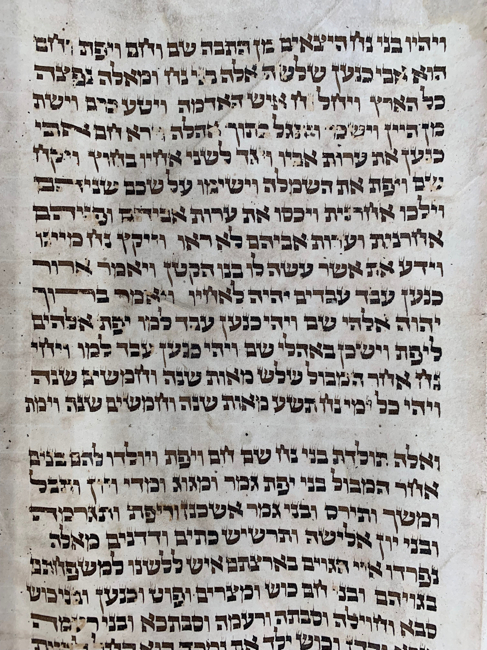 ויהיו בני נח היצאים מן התבה שם וחם ויפת וחם
הוא אבי כנען שלשה אלה בני נח ומאלה נפצה
כל הארץ ויחל נח איש האדמה ויטע כרם וישת
מן היין וישכר ויתגל בתוך אהלה וירא חם אבי
כנען את ערות אביו ויגד לשני אחיו בחוץ ויקח
שם ויפת את השמלה וישימו על שכם שניהם
וילכו אחרנית ויכסו את ערות אביהם ופניהם
אחרנית וערות אביהם לא ראו וייקץ נח מיינו
וידע את אשר עשה לו בנו הקטן ויאמר ארור
כנען עבד עבדים יהיה לאחיו ויאמר ברוך
יהוה אלהי שם ויהי כנען עבד למו יפת אלהים
ליפת וישכן באהלי שם ויהי כנען עבד למו ויחי
נח אחר המבול שלש מאות שנה וחמשים שנה
ויהי כל ימי נח תשע מאות שנה וחמשים שנה וימת
ואלה תולדת בני נח שם חם ויפת ויולדו להם בנים
אחר המבול בני יפת גמר ומגוג ומדי ויון ותבל
ומשך ותירס ובני גמר אשכנז וריפת ותגרמה
ובני יון אלישה ותרשיש כתים ודדנים מאלה
נפרדו איי הגוים בארצתם איש ללשנו למשפחתם
בגויהם ובני חם כוש ומצרים ופוט וכנען ובני כוש
סבא וחוילה וסבתה ורעמה וסבתכא ובני רעמה
שבא ודדן וכוש ילד את נמרד הוא החל להיות